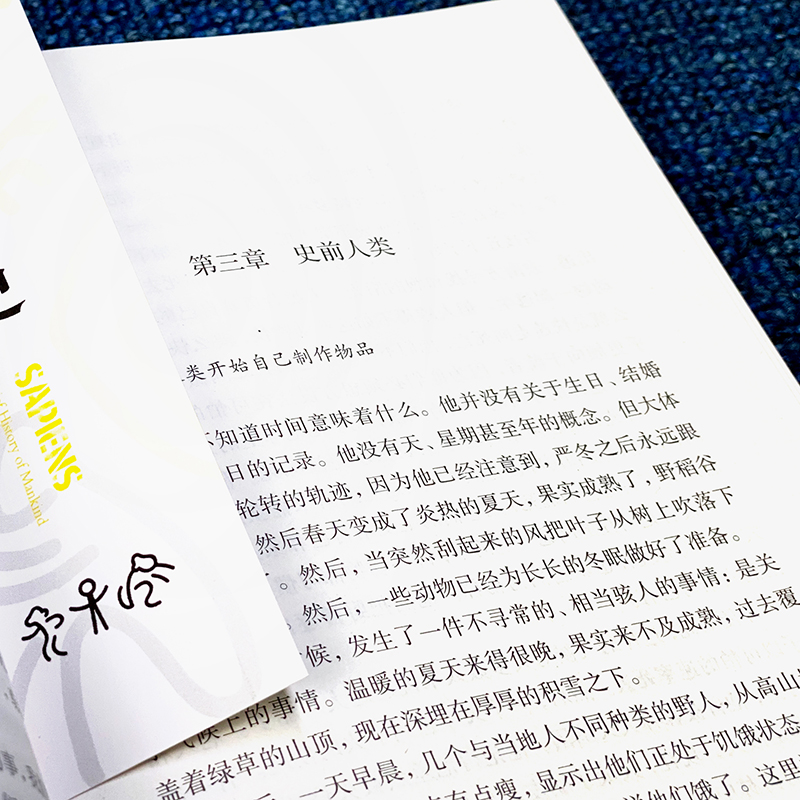 第三章 史前人类
类开始自己制作物品
不知道时间意味着什么。他并没有关于生日、结婚
日的记录。他没有天、星期甚至年的概念。但大体
轮转的轨迹，因为他已经注意到，严冬之后永远跟
然后春天变成了炎热的夏天，果实成熟了，野稻谷
。然后，当突然刮起来的风把叶子从树上吹落下
然后，一些动物已经为长长的冬眠做好了准备。
候，发生了一件不寻常的、相当骇人的事情；是关
气候上的事情。温暖的夏天来得很晚，果实来不及成熟，过去覆
盖着绿草的山顶，现在深埋在厚厚的积雪之下。
一天早晨，几个与当地人不同种类的野人，从高山
有点瘦，显示出他们正处于饥饿状态
他们饿了。这里
SAPIENS
of History of Mankind